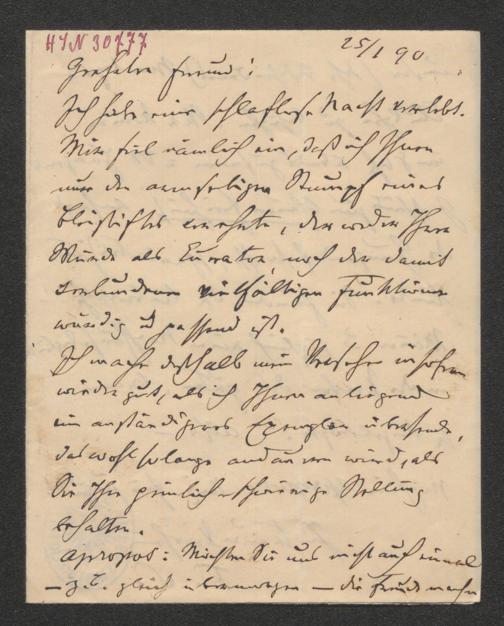 HIN 30777
25/1 90
Geehrter Freund!
Ich habe eine schlaflose Nacht verlebt.
Mir fiel nämlich ein, daß ich Ihnen
nur den armseligen Stumpf eines
Bleistiftes verehrte, der weder Ihrer
Würde als Curator noch der damit
verbundenen vielfältigen Funktionen
würdig u passend ist.
Ich mache deßhalb mein Versehen insofern
wieder gut, als ich Ihnen anliegend
ein anständigeres Exemplar übersende,
das wohl so lange andauern wird, als
Sie Ihre peinlich-schwierige Stellung
behalten.
Apropos: Möchten Sie uns nicht auch einmal
— z. B. gleich übermorgen — die Freude machen